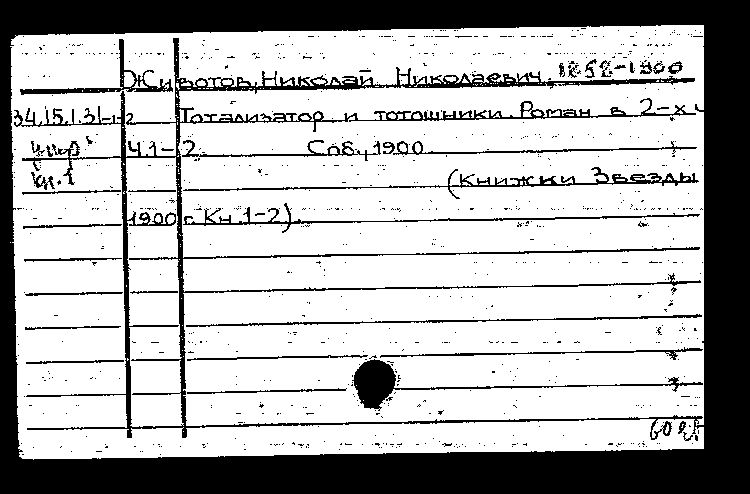 Животов, Николай Николаевич. 1858-1900
34.15.1.31-1-2 Тотализатор и тотошники. Роман в 2-х ч
Ч.1-2. Спб., 1900
кн.1
(Книжки Звезды
1900 г. Кн. 1-2).